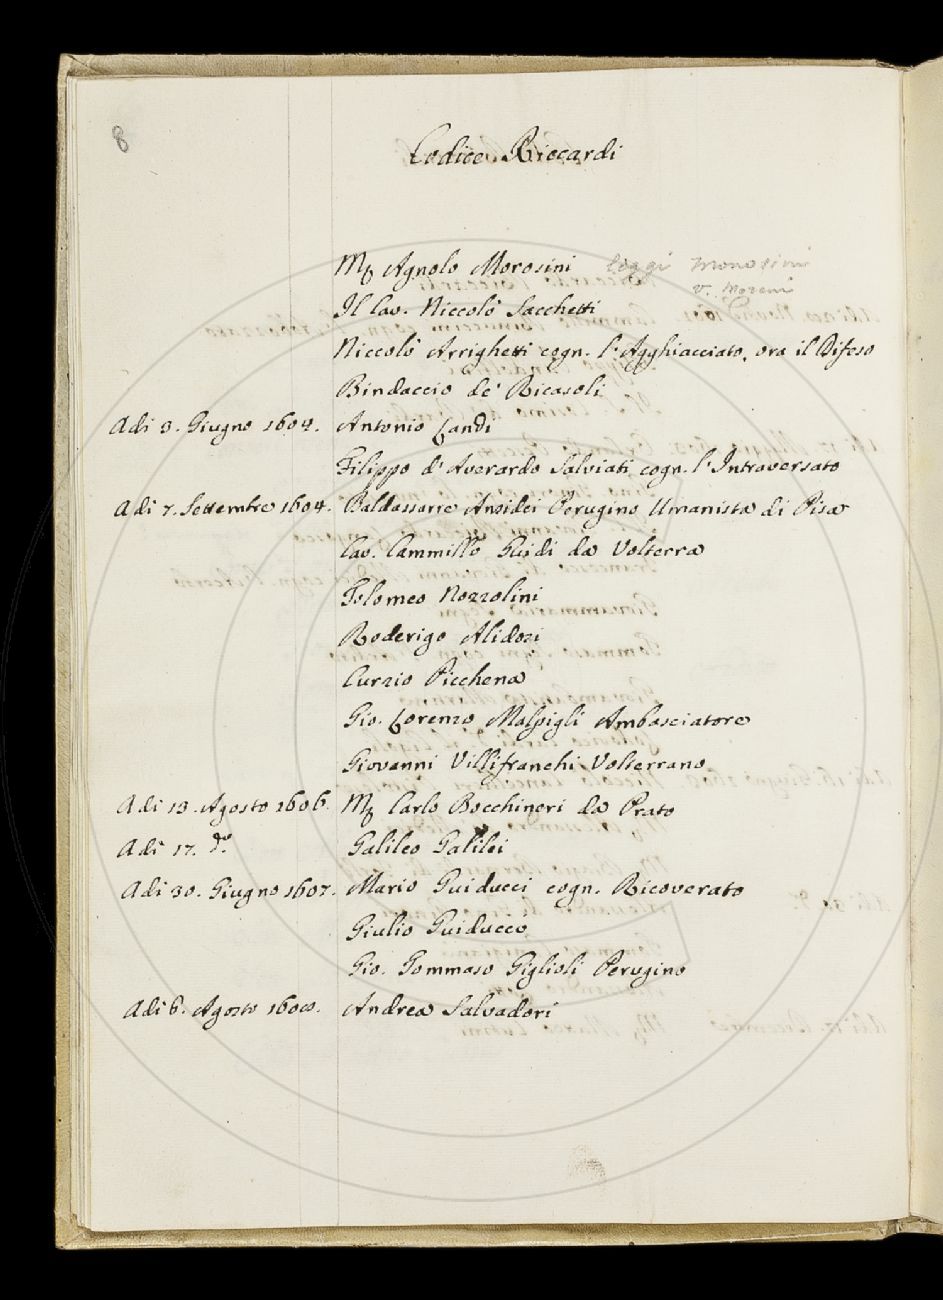 8
Codice Riccardi
Mſ Agnolo Morosini leggi Monosini
v. Moreni
Il Cav. Niccolò Sacchetti
Niccolò Arrighetti cogn. l'Agghiacciato, ora il Difeso
Bindaccio de' Ricasoli
Adi 3. Giugno 1604. Antonio Landi
Filippo d'Averardo Salviati cogn. l'Intraversato
Adi 7. Settembre 1604. Baldassarre Ansidei Perugino Umanista di Pisa
Cav. Cammillo Guidi da Volterra
Tolomeo Nozzolini
Roderigo Alidosi
Curzio Picchena
Gio. Lorenzo Malpigli Ambasciatore
Giovanni Villifranchi Volterrano
Adi 13. Agosto 1606. Mſ Carlo Bocchineri da Prato
Adi 17. do. Galileo Galilei
Adi 30. Giugno 1607. Mario Guiducci cogn. Ricoverato
Giulio Guiducci
Gio. Tommaso Giglioli Perugino
Adi 6. Agosto Andrea Salvadori